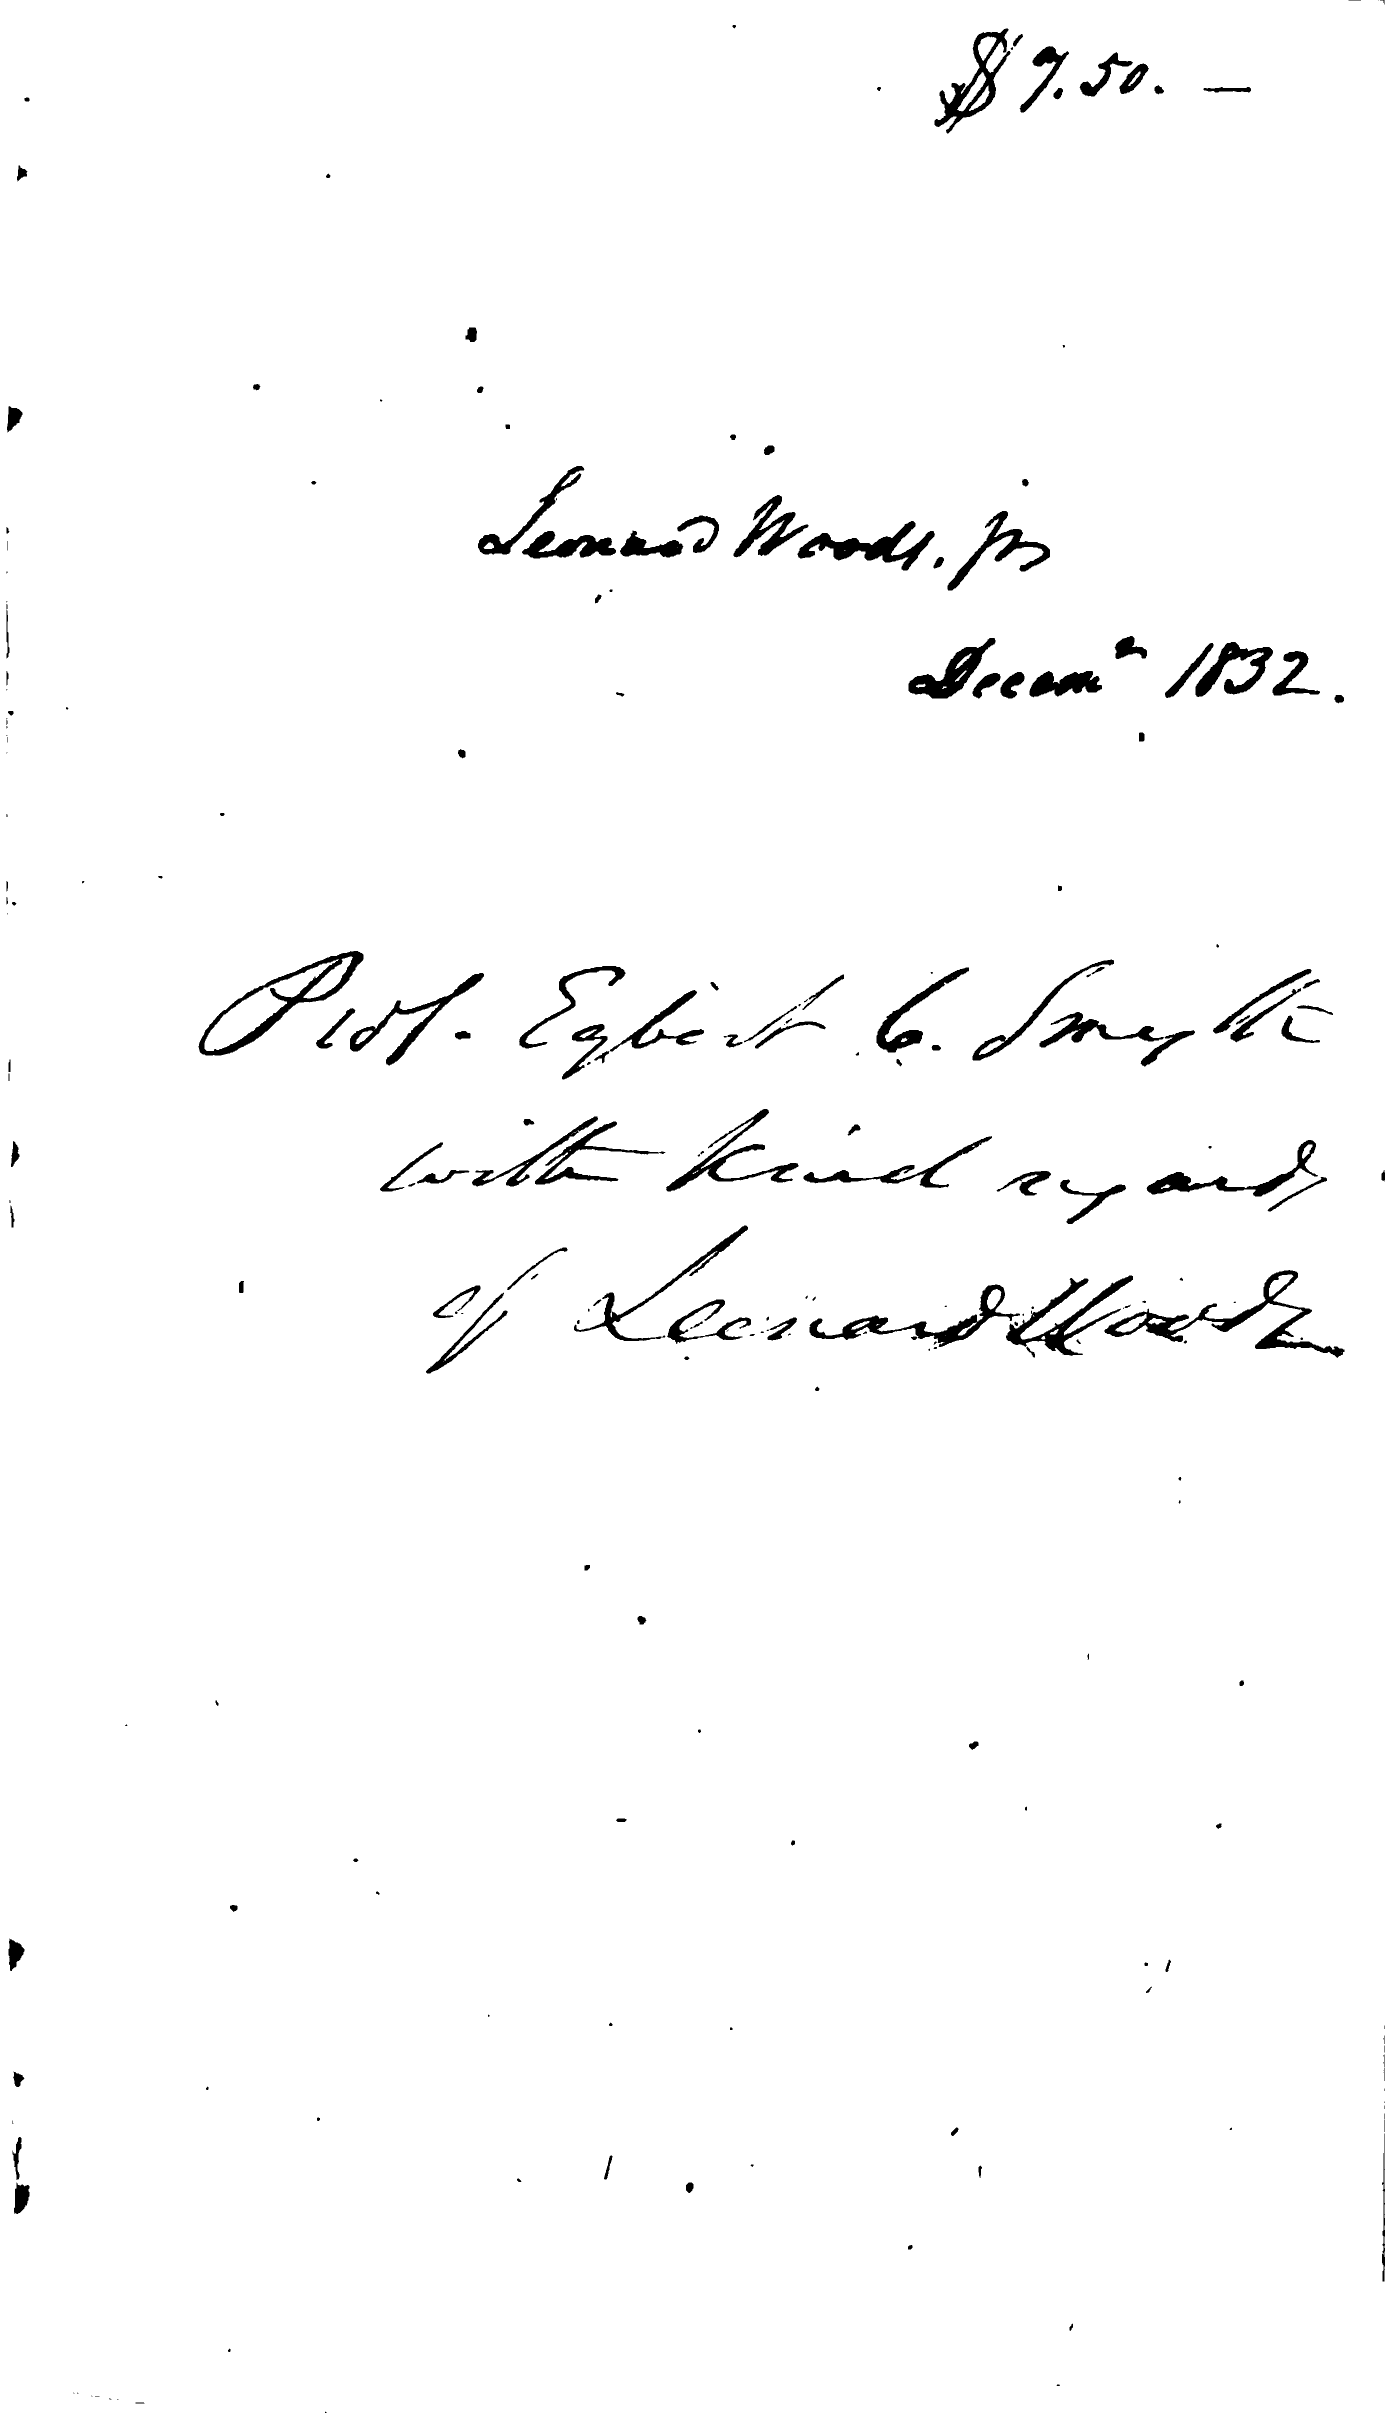 $7.50. —
Leonard Woods. jr
Decemr 1832.
Prof. Egbert C. Smyth
with kind regards
of Leonard Woods